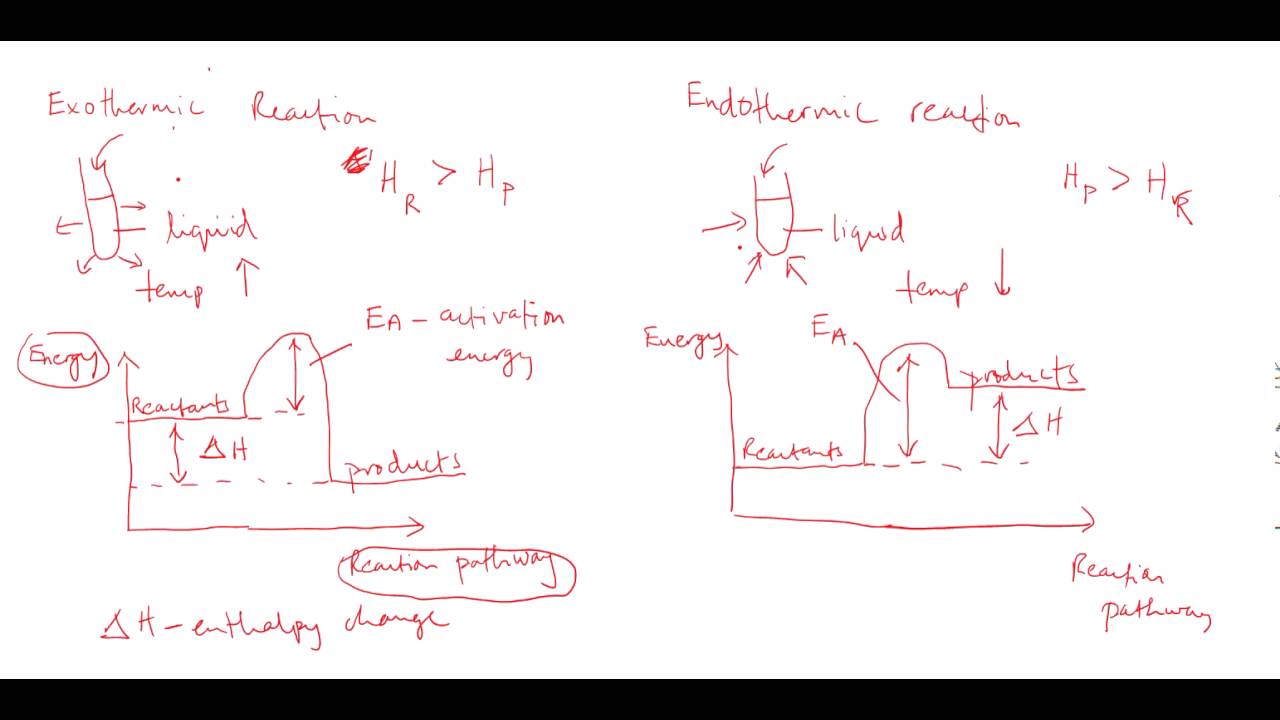 Exothermic Reaction
H_R > H_P
liquid
temp ↑
E_A – activation
energy
Energy
Reactants
ΔH
products
Reaction pathway
ΔH – enthalpy change
Endothermic reaction
H_P > H_R
liquid
temp ↓
E_A
Energy
products
ΔH
Reactants
Reaction
pathway